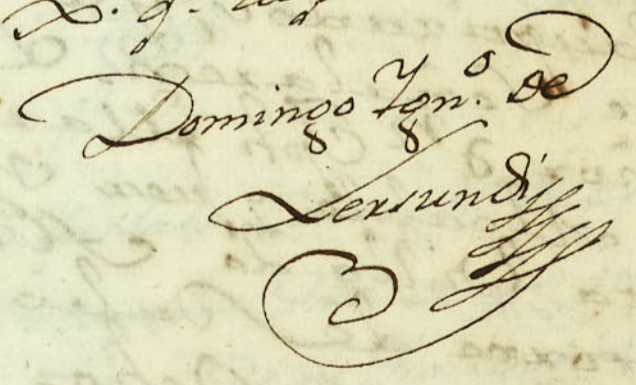 Domingo Ygn.º de
Lersundi